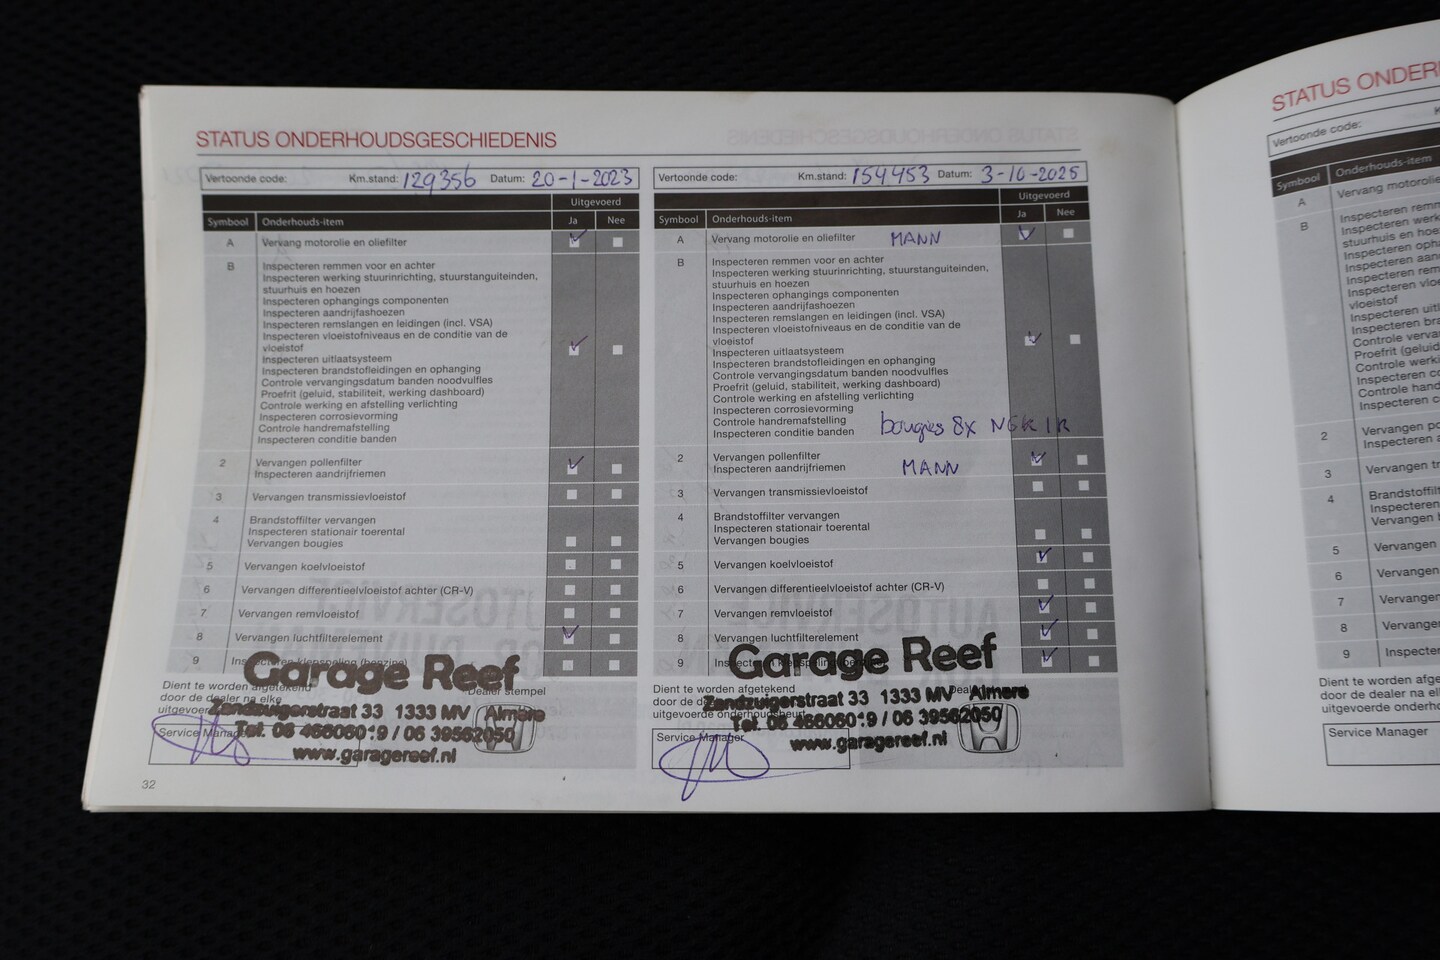 STATUS ONDERHOUDSGESCHIEDENIS
Vertoonde code: Km.stand: 129356 Datum: 20-1-2023
Uitgevoerd
Symbool Onderhouds-item Ja Nee
A Vervang motorolie en oliefilter
B Inspecteren remmen voor en achter
Inspecteren werking stuurinrichting, stuurstanguiteinden,
stuurhuis en hoezen
Inspecteren ophangings componenten
Inspecteren aandrijfashoezen
Inspecteren remslangen en leidingen (incl. VSA)
Inspecteren vloeistofniveaus en de conditie van de
vloeistof
Inspecteren uitlaatsysteem
Inspecteren brandstofleidingen en ophanging
Controle vervangingsdatum banden noodvulfles
Proefrit (geluid, stabiliteit, werking dashboard)
Controle werking en afstelling verlichting
Inspecteren corrosievorming
Controle handremafstelling
Inspecteren conditie banden
2 Vervangen pollenfilter
Inspecteren aandrijfriemen
3 Vervangen transmissievloeistof
4 Brandstoffilter vervangen
Inspecteren stationair toerental
Vervangen bougies
5 Vervangen koelvloeistof
6 Vervangen differentieelvloeistof achter (CR-V)
7 Vervangen remvloeistof
8 Vervangen luchtfilterelement
9 Inspecteren klepspeling (benzine)
Garage Reef
Dient te worden afgetekend
door de dealer na elke
uitgevoerde
Dealer stempel
Zandzuigerstraat 33 1333 MV Almere
Service Manager
Tel. 06 46606019 / 06 39562050
www.garagereef.nl
32
Vertoonde code: Km.stand: 154453 Datum: 3-10-2025
Uitgevoerd
Symbool Onderhouds-item Ja Nee
A Vervang motorolie en oliefilter MANN
B Inspecteren remmen voor en achter
Inspecteren werking stuurinrichting, stuurstanguiteinden,
stuurhuis en hoezen
Inspecteren ophangings componenten
Inspecteren aandrijfashoezen
Inspecteren remslangen en leidingen (incl. VSA)
Inspecteren vloeistofniveaus en de conditie van de
vloeistof
Inspecteren uitlaatsysteem
Inspecteren brandstofleidingen en ophanging
Controle vervangingsdatum banden noodvulfles
Proefrit (geluid, stabiliteit, werking dashboard)
Controle werking en afstelling verlichting
Inspecteren corrosievorming
Controle handremafstelling
Inspecteren conditie banden bougies 8x NGK IR
2 Vervangen pollenfilter
Inspecteren aandrijfriemen MANN
3 Vervangen transmissievloeistof
4 Brandstoffilter vervangen
Inspecteren stationair toerental
Vervangen bougies
5 Vervangen koelvloeistof
6 Vervangen differentieelvloeistof achter (CR-V)
7 Vervangen remvloeistof
8 Vervangen luchtfilterelement
9 Inspecteren klepspeling
Garage Reef
Dient te worden afgetekend
door de dealer
uitgevoerde onderhoudsbeurt
Zandzuigerstraat 33 1333 MV Almere
Service Manager
Tel. 06 46606019 / 06 39562050
www.garagereef.nl
STATUS ONDER
Vertoonde code:
Symbool Onderhouds-item
A Vervang motorolie
B Inspecteren remm
Inspecteren werk
stuurhuis en hoe
Inspecteren oph
Inspecteren aan
Inspecteren rem
Inspecteren vloe
vloeistof
Inspecteren uitl
Inspecteren bra
Controle verva
Proefrit (geluid
Controle werki
Inspecteren co
Controle hand
Inspecteren c
2 Vervangen po
Inspecteren a
3 Vervangen tr
4 Brandstoffilt
Inspecteren
Vervangen b
5 Vervangen
6 Vervangen
7 Vervangen
8 Vervangen
9 Inspectere
Dient te worden afge
door de dealer na e
uitgevoerde onderho
Service Manager